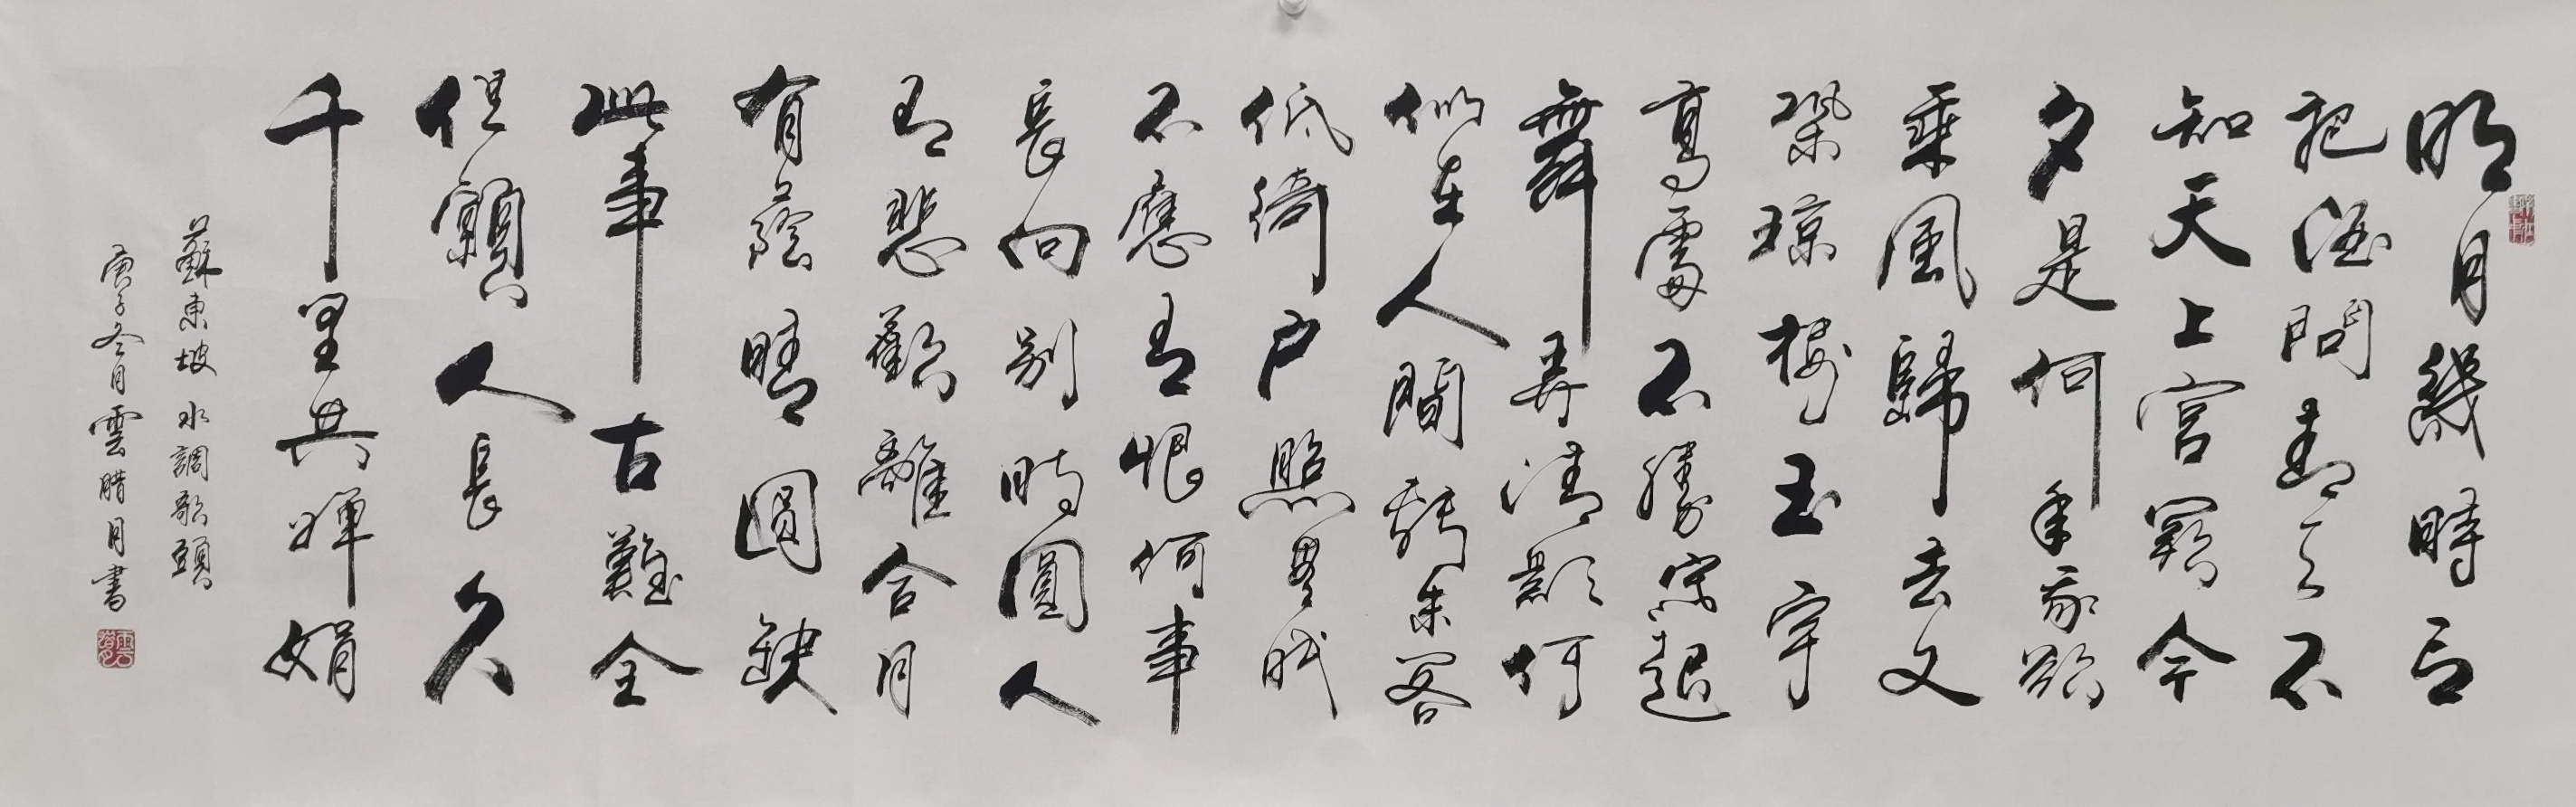 明月幾時有
把酒問青天不
知天上宫闕今
夕是何年我欲
乘風歸去又
恐琼樓玉宇
高處不勝寒起
舞弄清影何
似在人間轉朱閣
低綺户照無眠
不應有恨何事
長向别時圓人
有悲歡離合月
有蔭晴圓缺
此事古難全
但願人長久
千里共嬋娟
蘇東坡 水調歌頭
庚子冬月雲腊月書